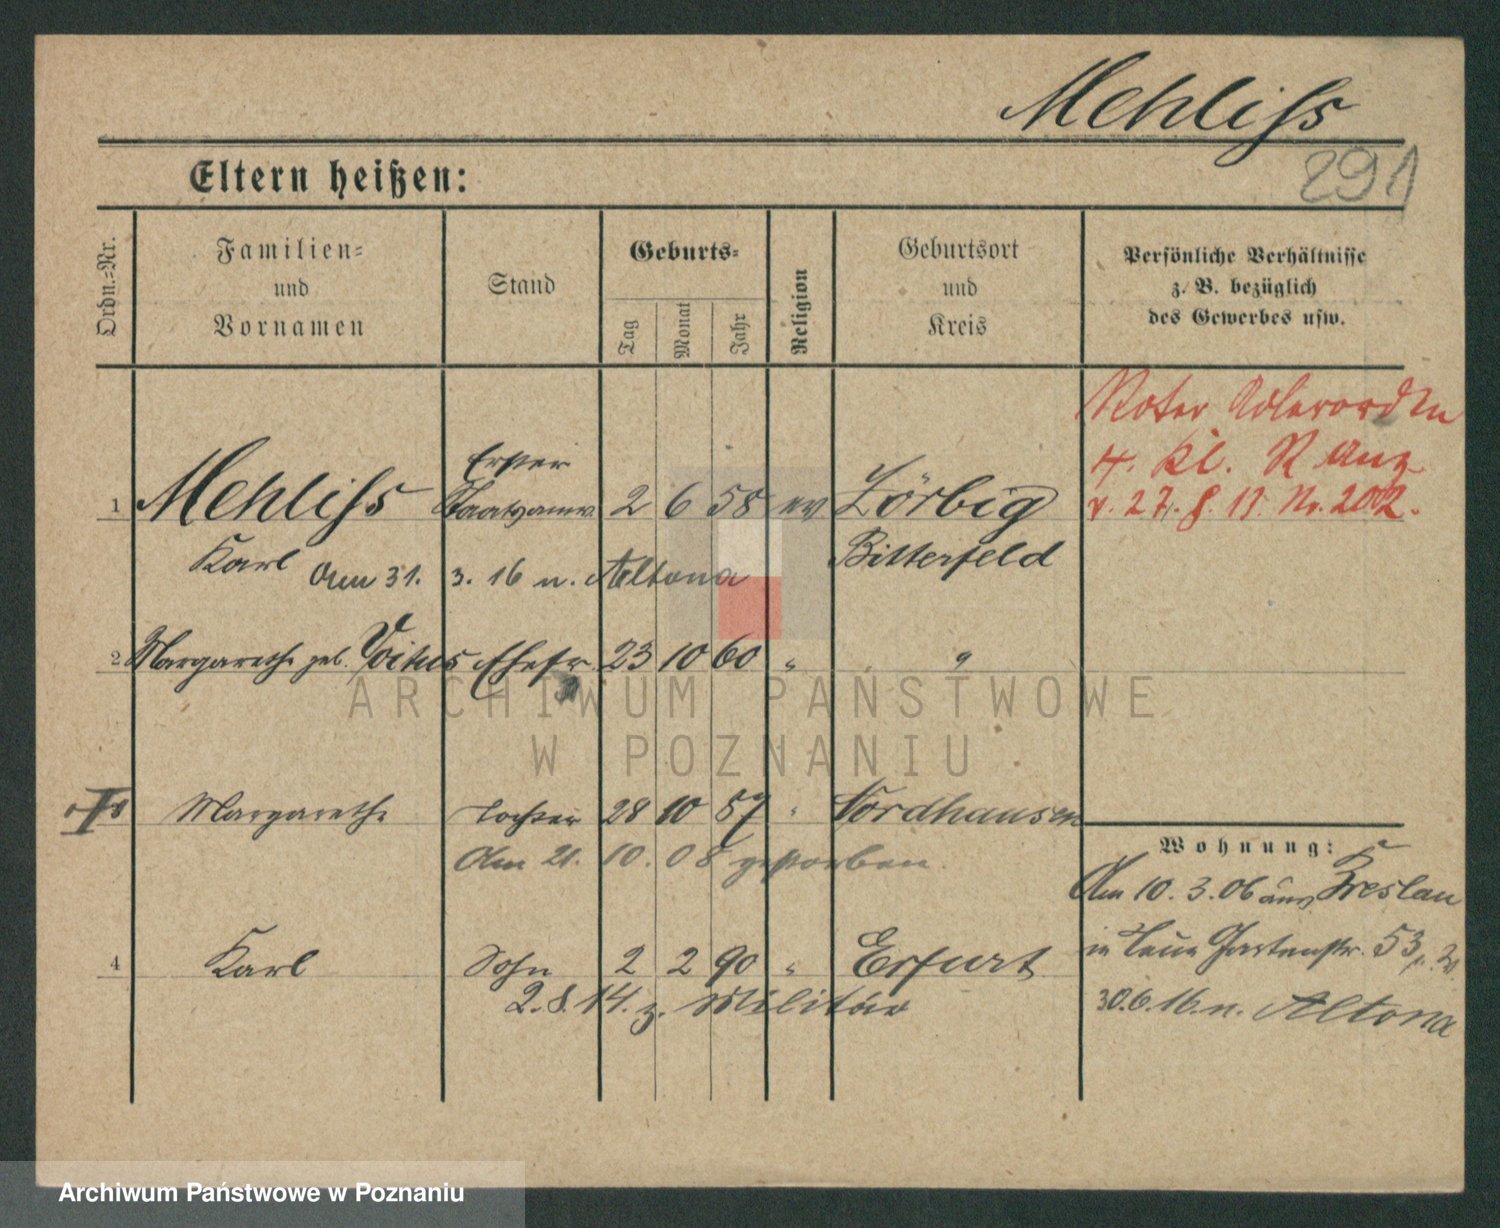 Mehliſs
291
Eltern heißen:
Ordn.=Nr.
Familien=
und
Vornamen
Stand
Geburts=
Tag
Monat
Jahr
Religion
Geburtsort
und
Kreis
Persönliche Verhältnisse
z. B. bezüglich
des Gewerbes usw.
Roter Adlerorden
4. Kl. R Anz
v. 27. 8. 11. Nr. 202.
1 Mehliſs Erster Staatsanw. 2 6 58 ev Zörbig
Karl Am 31. 3. 16 n. Altona Bitterfeld
2 Margarethe geb. Voitus Ehefr. 23 10 60 " "
Margarethe Tochter 28 10 87 " Nordhausen
Am 21. 10. 08 gestorben.
4 Karl Sohn 2 2 90 " Erfurt
2. 8. 14. z. Militär
Wohnung:
Am 10. 3. 06 aus Breslau
in Neue Gartenstr. 53
30. 6. 16. n. Altona
ARCHIWUM PAŃSTWOWE
W POZNANIU
Archiwum Państwowe w Poznaniu